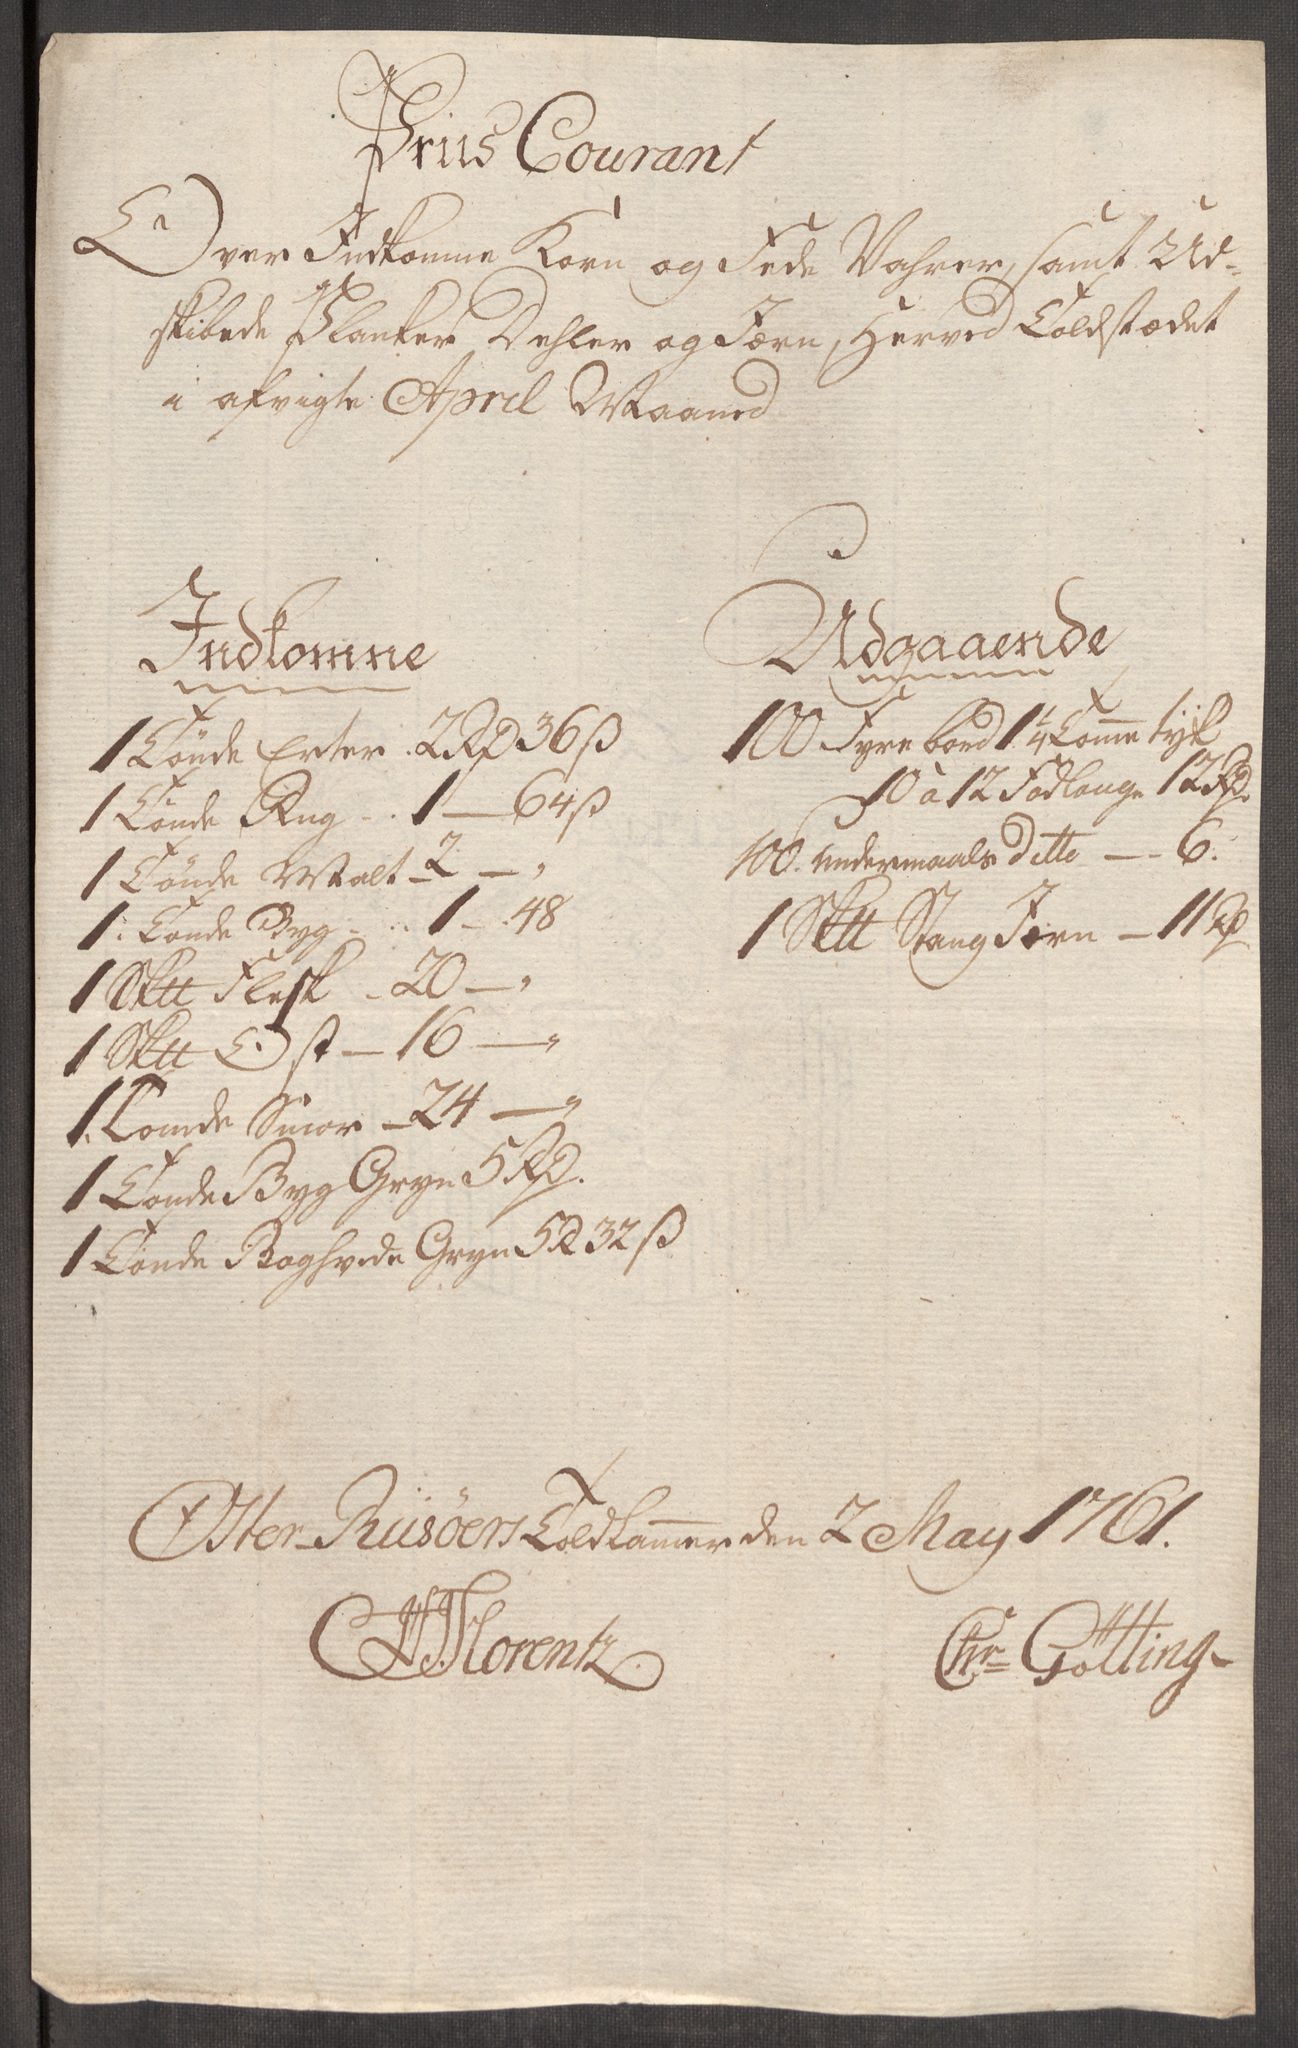 Priis Courant
Over Indkomne Korn og Fede Vahrer, samt Ud-
skibede Planker Dehler og Jærn, Herved Toldstædet
i afvigte April Maaned
Indkomne
1 Tönde Erter . 2 Rd 36 ß
1 Tönde Rug - . 1 — 64 ß
1 Tönde Malt - 2 — "
1. Tönde Byg - .. 1 - . 48
1 Sk℔ Flesk - 20 — "
1 Sk℔ Ost — 16 — "
1. Tønde Smør - 24 — "
1 Tønde Byg Gryn 5 Rd.
1 Tönde Boghvede Gryn 5 R 32 ß
Udgaaende
100 Fyre bord 1 1/4 Tomme tyk
10 a 12 Fod lange 12 Rd.
100. undermaals Ditto — 6.
1 Sk℔ Stang Jærn — 11 Rd
Oster-Riisöers Toldkammer den 2 May 1761.
Florentz
Chr= Götting